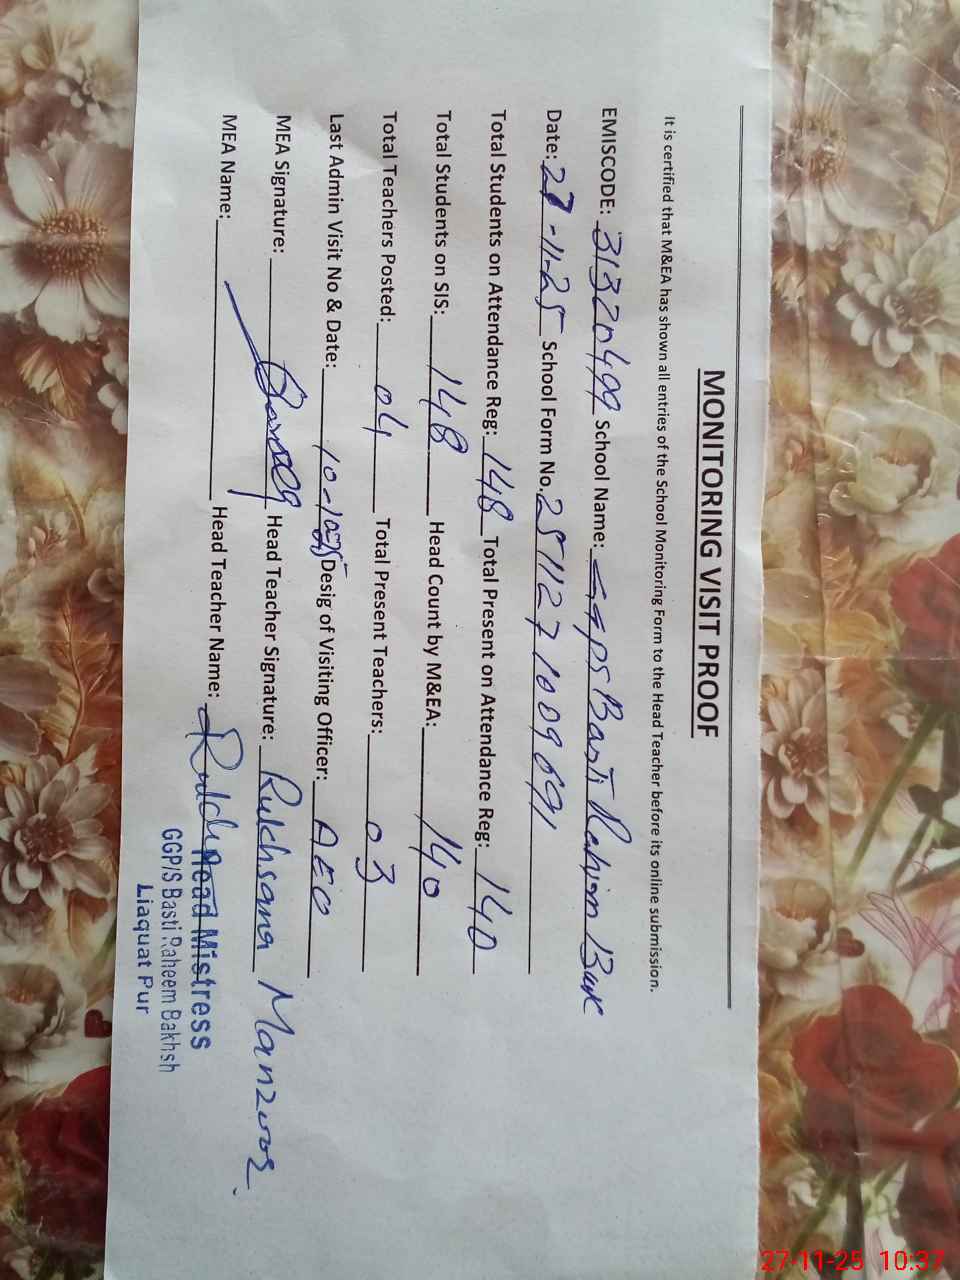 MONITORING VISIT PROOF
It is certified that M&EA has shown all entries of the School Monitoring Form to the Head Teacher before its online submission.
EMISCODE: 31320499 School Name: GGPS Basti Rahim Bux
Date: 27-11-25 School Form No. 251127100969
Total Students on Attendance Reg: 148 Total Present on Attendance Reg: 140
Total Students on SIS: 148 Head Count by M&EA: 140
Total Teachers Posted: 04 Total Present Teachers: 03
Last Admin Visit No & Date: 10-10-25 Desig of Visiting Officer: AEO
MEA Signature: Head Teacher Signature: Rukhsana Manzoor
MEA Name: Head Teacher Name:
Head Mistress
GGP/S Basti Raheem Bakhsh
Liaquat Pur
27-11-25 10:37